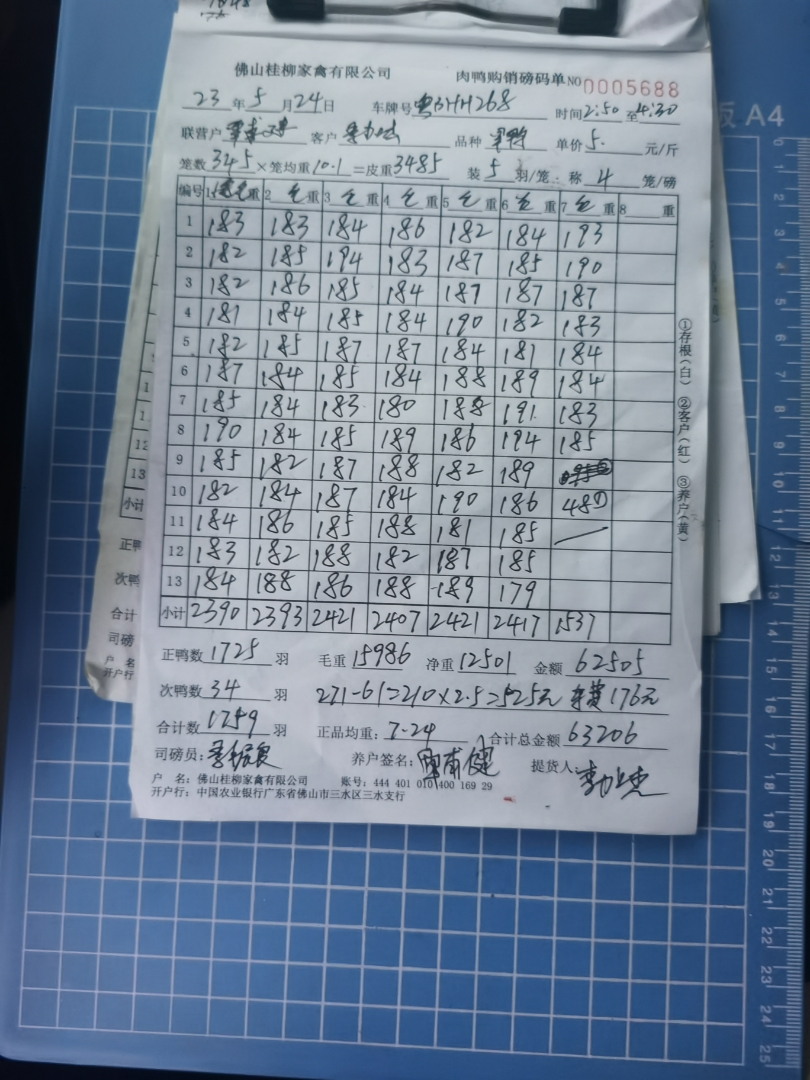 佛山桂柳家禽有限公司 肉鸭购销磅码单 NO 0005688
23 年 5 月 24 日 车牌号 粤BHH268 时间 2:50 至 4:30
联营户 客户 品种 单价 5. 元/斤
笼数 345 × 笼均重 10.1 = 皮重 3485 装 5 羽/笼: 称 4 笼/磅
编号 1 重 2 毛 重 3 毛 重 4 毛 重 5 毛 重 6 毛 重 7 毛 重 8 重
1 183 183 184 186 182 184 193
2 182 185 194 183 187 185 190
3 182 186 185 184 187 187 187
4 181 184 185 184 190 182 183
5 182 185 187 187 184 181 184
6 187 184 185 184 188 189 184
7 185 184 183 180 188 191 183
8 190 184 185 189 186 194 185
9 185 182 187 188 182 189
10 182 184 187 184 190 186 48
11 184 186 185 188 181 185
12 183 182 188 182 187 185
13 184 188 186 188 189 179
小计 2390 2393 2421 2407 2421 2417 1537
正鸭数 1725 羽 毛重 15986 净重 12501 金额 62505
次鸭数 34 羽 271-61=210×2.5=525元 176元
合计数 1759 羽 正品均重: 7.24 合计总金额 63206
司磅员: 养户签名: 提货人:
户 名: 佛山桂柳家禽有限公司 账号: 444 401 010 400 169 29
开户行: 中国农业银行广东省佛山市三水区三水支行
①存根(白) ②客户(红) ③养户(黄)
A4